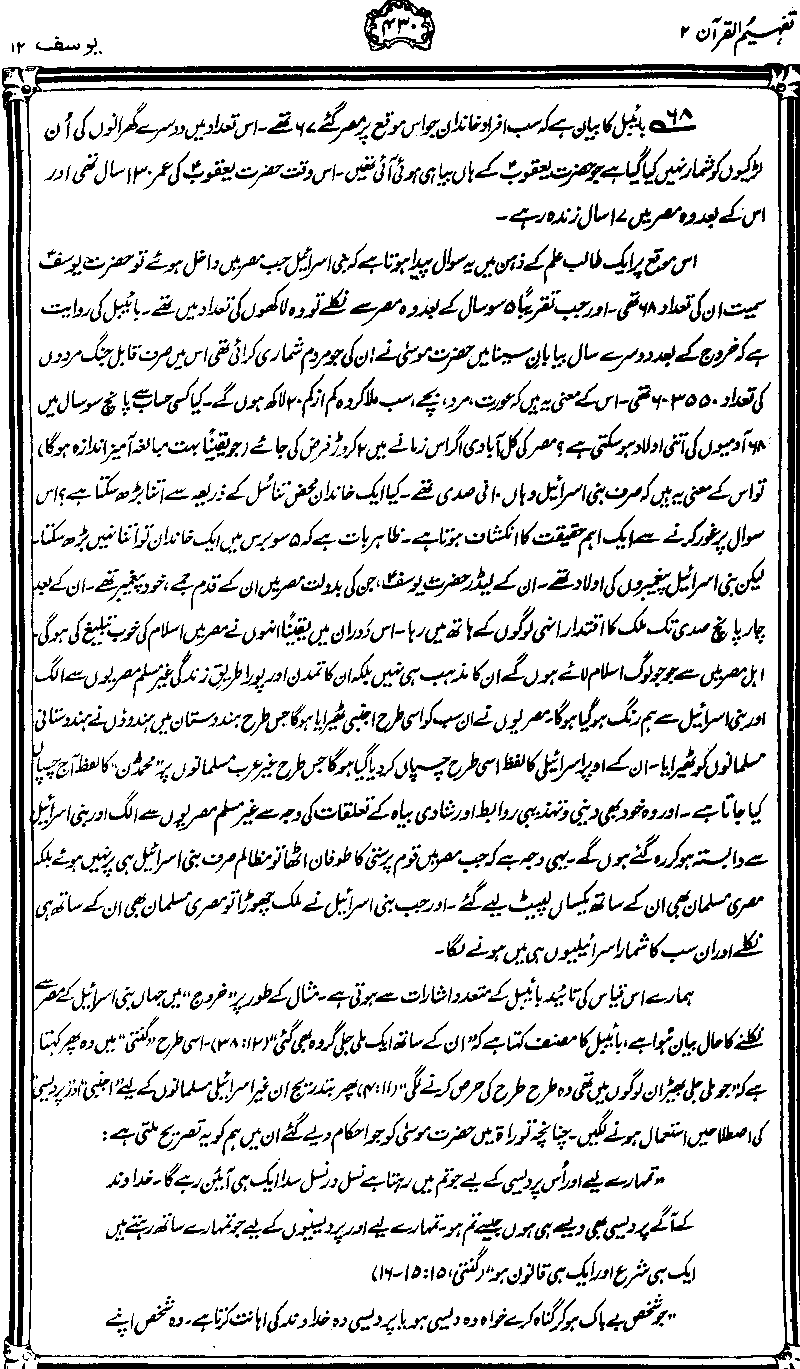 تفہیم القرآن ۲
۴۳۰
یوسف ۱۲
۶۸ بائیبل کا بیان ہے کہ سب افراد خاندان جو اس موقع پر مصر گئے ۶۷ تھے۔ اس تعداد میں دوسرے گھرانوں کی اُن
لڑکیوں کو شمار نہیں کیا گیا ہے جو حضرت یعقوبؑ کے ہاں بیاہی ہوئی آئی تھیں۔ اس وقت حضرت یعقوبؑ کی عمر ۱۳۰ سال تھی اور
اس کے بعد وہ مصر میں ۱۷ سال زندہ رہے۔
اس موقع پر ایک طالب علم کے ذہن میں یہ سوال پیدا ہوتا ہے کہ بنی اسرائیل جب مصر میں داخل ہوئے تو حضرت یوسفؑ
سمیت ان کی تعداد ۶۸ تھی۔ اور جب تقریباً ۵ سو سال کے بعد وہ مصر سے نکلے تو وہ لاکھوں کی تعداد میں تھے۔ بائیبل کی روایت
ہے کہ خروج کے بعد دوسرے سال بیابان سینا میں حضرت موسیٰ نے ان کی جو مردم شماری کرائی تھی اس میں صرف قابل جنگ مردوں
کی تعداد ۶۰۳۵۵۰ تھی۔ اس کے معنی یہ ہیں کہ عورت، مرد، بچے، سب ملا کر وہ کم از کم ۲۰ لاکھ ہوں گے۔ کیا کسی حساب سے پانچ سو سال میں
۶۸ آدمیوں کی اتنی اولاد ہو سکتی ہے؟ مصر کی کل آبادی اگر اس زمانے میں ۲ کروڑ فرض کی جائے (جو یقیناً بہت مبالغہ آمیز اندازہ ہوگا)
تو اس کے معنی یہ ہیں کہ صرف بنی اسرائیل وہاں ۱۰ فی صدی تھے۔ کیا ایک خاندان محض تناسُل کے ذریعہ سے اتنا بڑھ سکتا ہے؟ اس
سوال پر غور کرنے سے ایک اہم حقیقت کا انکشاف ہوتا ہے۔ ظاہر بات ہے کہ ۵ سو برس میں ایک خاندان تو اتنا نہیں بڑھ سکتا۔
لیکن بنی اسرائیل پیغمبروں کی اولاد تھے۔ ان کے لیڈر حضرت یوسفؑ، جن کی بدولت مصر میں ان کے قدم جمے، خود پیغمبر تھے۔ ان کے بعد
چار پانچ صدی تک ملک کا اقتدار انہی لوگوں کے ہاتھ میں رہا۔ اس دَوران میں یقیناً انہوں نے مصر میں اسلام کی خوب تبلیغ کی ہوگی۔
اہل مصر میں سے جو جو لوگ اسلام لائے ہوں گے ان کا مذہب ہی نہیں بلکہ ان کا تمدن اور پورا طریق زندگی غیر مسلم مصریوں سے الگ
اور بنی اسرائیل سے ہم رنگ ہو گیا ہوگا۔ مصریوں نے ان سب کو اسی طرح اجنبی ٹھیرایا ہوگا جس طرح ہندوستان میں ہندوؤں نے ہندوستانی
مسلمانوں کو ٹھیرایا۔ ان کے اوپر اسرائیلی کا لفظ اسی طرح چسپاں کر دیا گیا ہوگا جس طرح غیر عرب مسلمانوں پر "محمڈن" کا لفظ آج چسپاں
کیا جاتا ہے۔ اور وہ خود بھی دینی و تہذیبی روابط اور شادی بیاہ کے تعلقات کی وجہ سے غیر مسلم مصریوں سے الگ اور بنی اسرائیل
سے وابستہ ہو کر رہ گئے ہوں گے۔ یہی وجہ ہے کہ جب مصر میں قوم پرستی کا طوفان اٹھا تو مظالم صرف بنی اسرائیل ہی پر نہیں ہوئے بلکہ
مصری مسلمان بھی ان کے ساتھ یکساں لپیٹ لیے گئے۔ اور جب بنی اسرائیل نے ملک چھوڑا تو مصری مسلمان بھی ان کے ساتھ ہی
نکلے اور ان سب کا شمار اسرائیلیوں ہی میں ہونے لگا۔
ہمارے اس قیاس کی تائید بائیبل کے متعدد اشارات سے ہوتی ہے۔ مثال کے طور پر "خروج" میں جہاں بنی اسرائیل کے مصر سے
نکلنے کا حال بیان ہوا ہے، بائیبل کا مصنف کہتا ہے کہ "ان کے ساتھ ایک ملی جلی گروہ بھی گئی" (۱۲: ۳۸)۔ اسی طرح "گنتی" میں وہ پھر کہتا
ہے کہ "جو ملی جلی بھیڑ ان لوگوں میں تھی وہ طرح طرح کی حرص کرنے لگی" (۱۱: ۴) پھر بتدریج ان غیر اسرائیلی مسلمانوں کے لیے "اجنبی" اور "پردیسی"
کی اصطلاحیں استعمال ہونے لگیں۔ چنانچہ توراۃ میں حضرت موسیٰ کو جو احکام دیے گئے ان میں ہم کو یہ تصریح ملتی ہے:
"تمہارے لیے اور اُس پردیسی کے لیے جو تم میں رہتا ہے نسل در نسل سدا ایک ہی آئین رہے گا۔ خداوند
کے آگے پردیسی بھی ویسے ہی ہوں جیسے تم ہو۔ تمہارے لیے اور پردیسیوں کے لیے جو تمہارے ساتھ رہتے ہیں
ایک ہی شرع اور ایک ہی قانون ہو" (گنتی، ۱۵: ۱۵-۱۶)
"جو شخص بے باک ہو کر گناہ کرے خواہ وہ دیسی ہو یا پردیسی وہ خداوند کی اہانت کرتا ہے۔ وہ شخص اپنے